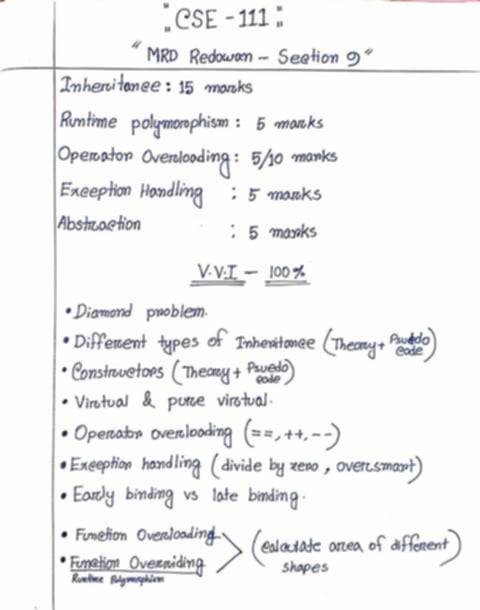 :: CSE - 111 ::
"MRD Redowan - Section 9"
Inheritance : 15 marks
Runtime polymorphism : 5 marks
Operator Overloading : 5/10 marks
Exception Handling : 5 marks
Abstraction : 5 marks
V.V.I - 100%
• Diamond problem.
• Different types of Inheritance (Theory + Psuedo code)
• Constructors (Theory + Psuedo code)
• Virtual & pure virtual.
• Operator overloading (==, ++, --)
• Exception handling (divide by zero, oversmart)
• Early binding vs late binding.
• Function Overloading
• Function Overriding
Runtime Polymorphism
(Calculate area of different shapes)